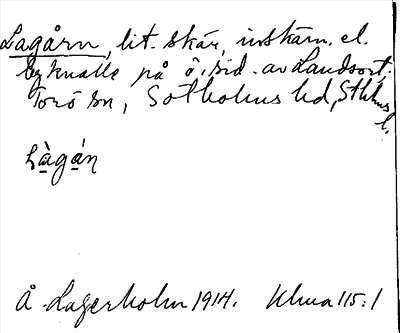 Lagårn, lit. skär, inskärn. el.
byknalle på ö. sid. av Landsort,
Torö sn, Sotholms hd, Sthlms l.
Làgán
Å. Lagerholm 1914. Uhua 115:1